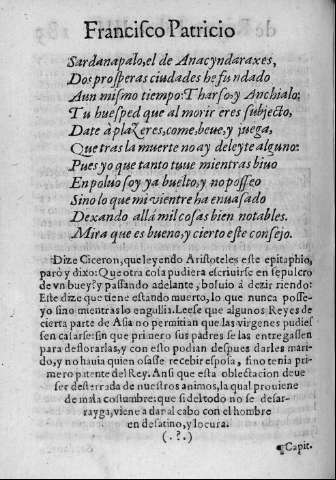 Francisco Patricio
Sardanapalo, el de Anacyndaraxes,
Dos prosperas ciudades he fundado
Aun mismo tiempo: Tharso, y Anchialo:
Tu huesped que al morir eres subjecto,
Date à plazeres, come, beue, y juega,
Que tras la muerte no ay deleyte alguno:
Pues yo que tanto tuue mientras biuo
En poluo soy ya buelto, y no posseo
Sino lo que mi vientre ha enuasado
Dexando allà mil cosas bien notables.
Mira que es bueno, y cierto este consejo.
Dize Ciceron, que leyendo Aristoteles este epitaphio,
parò y dixo: Que otra cosa pudiera escriuirse en sepulcro
de vn buey? y passando adelante, boluio à dezir riendo:
Este dize que tiene estando muerto, lo que nunca posse-
yo sino mientras lo engullia. Leese que algunos Reyes de
cierta parte de Asia no permitian que las virgenes pudies
sen casarse: sin que primero sus padres se las entregassen
para desflorarlas, y con esto podian despues darles mari-
do, y no hauia quien osasse recebir esposa, sino tenia pri-
mero patente del Rey. Ansi que esta oblectacion deue
ser desterrada de nuestros animos, la qual prouiene
de mala costumbre: que si del todo no se desar-
rayga, viene a dar al cabo con el hombre
en desatino, y locura.
(.?.)
¶ Capit.